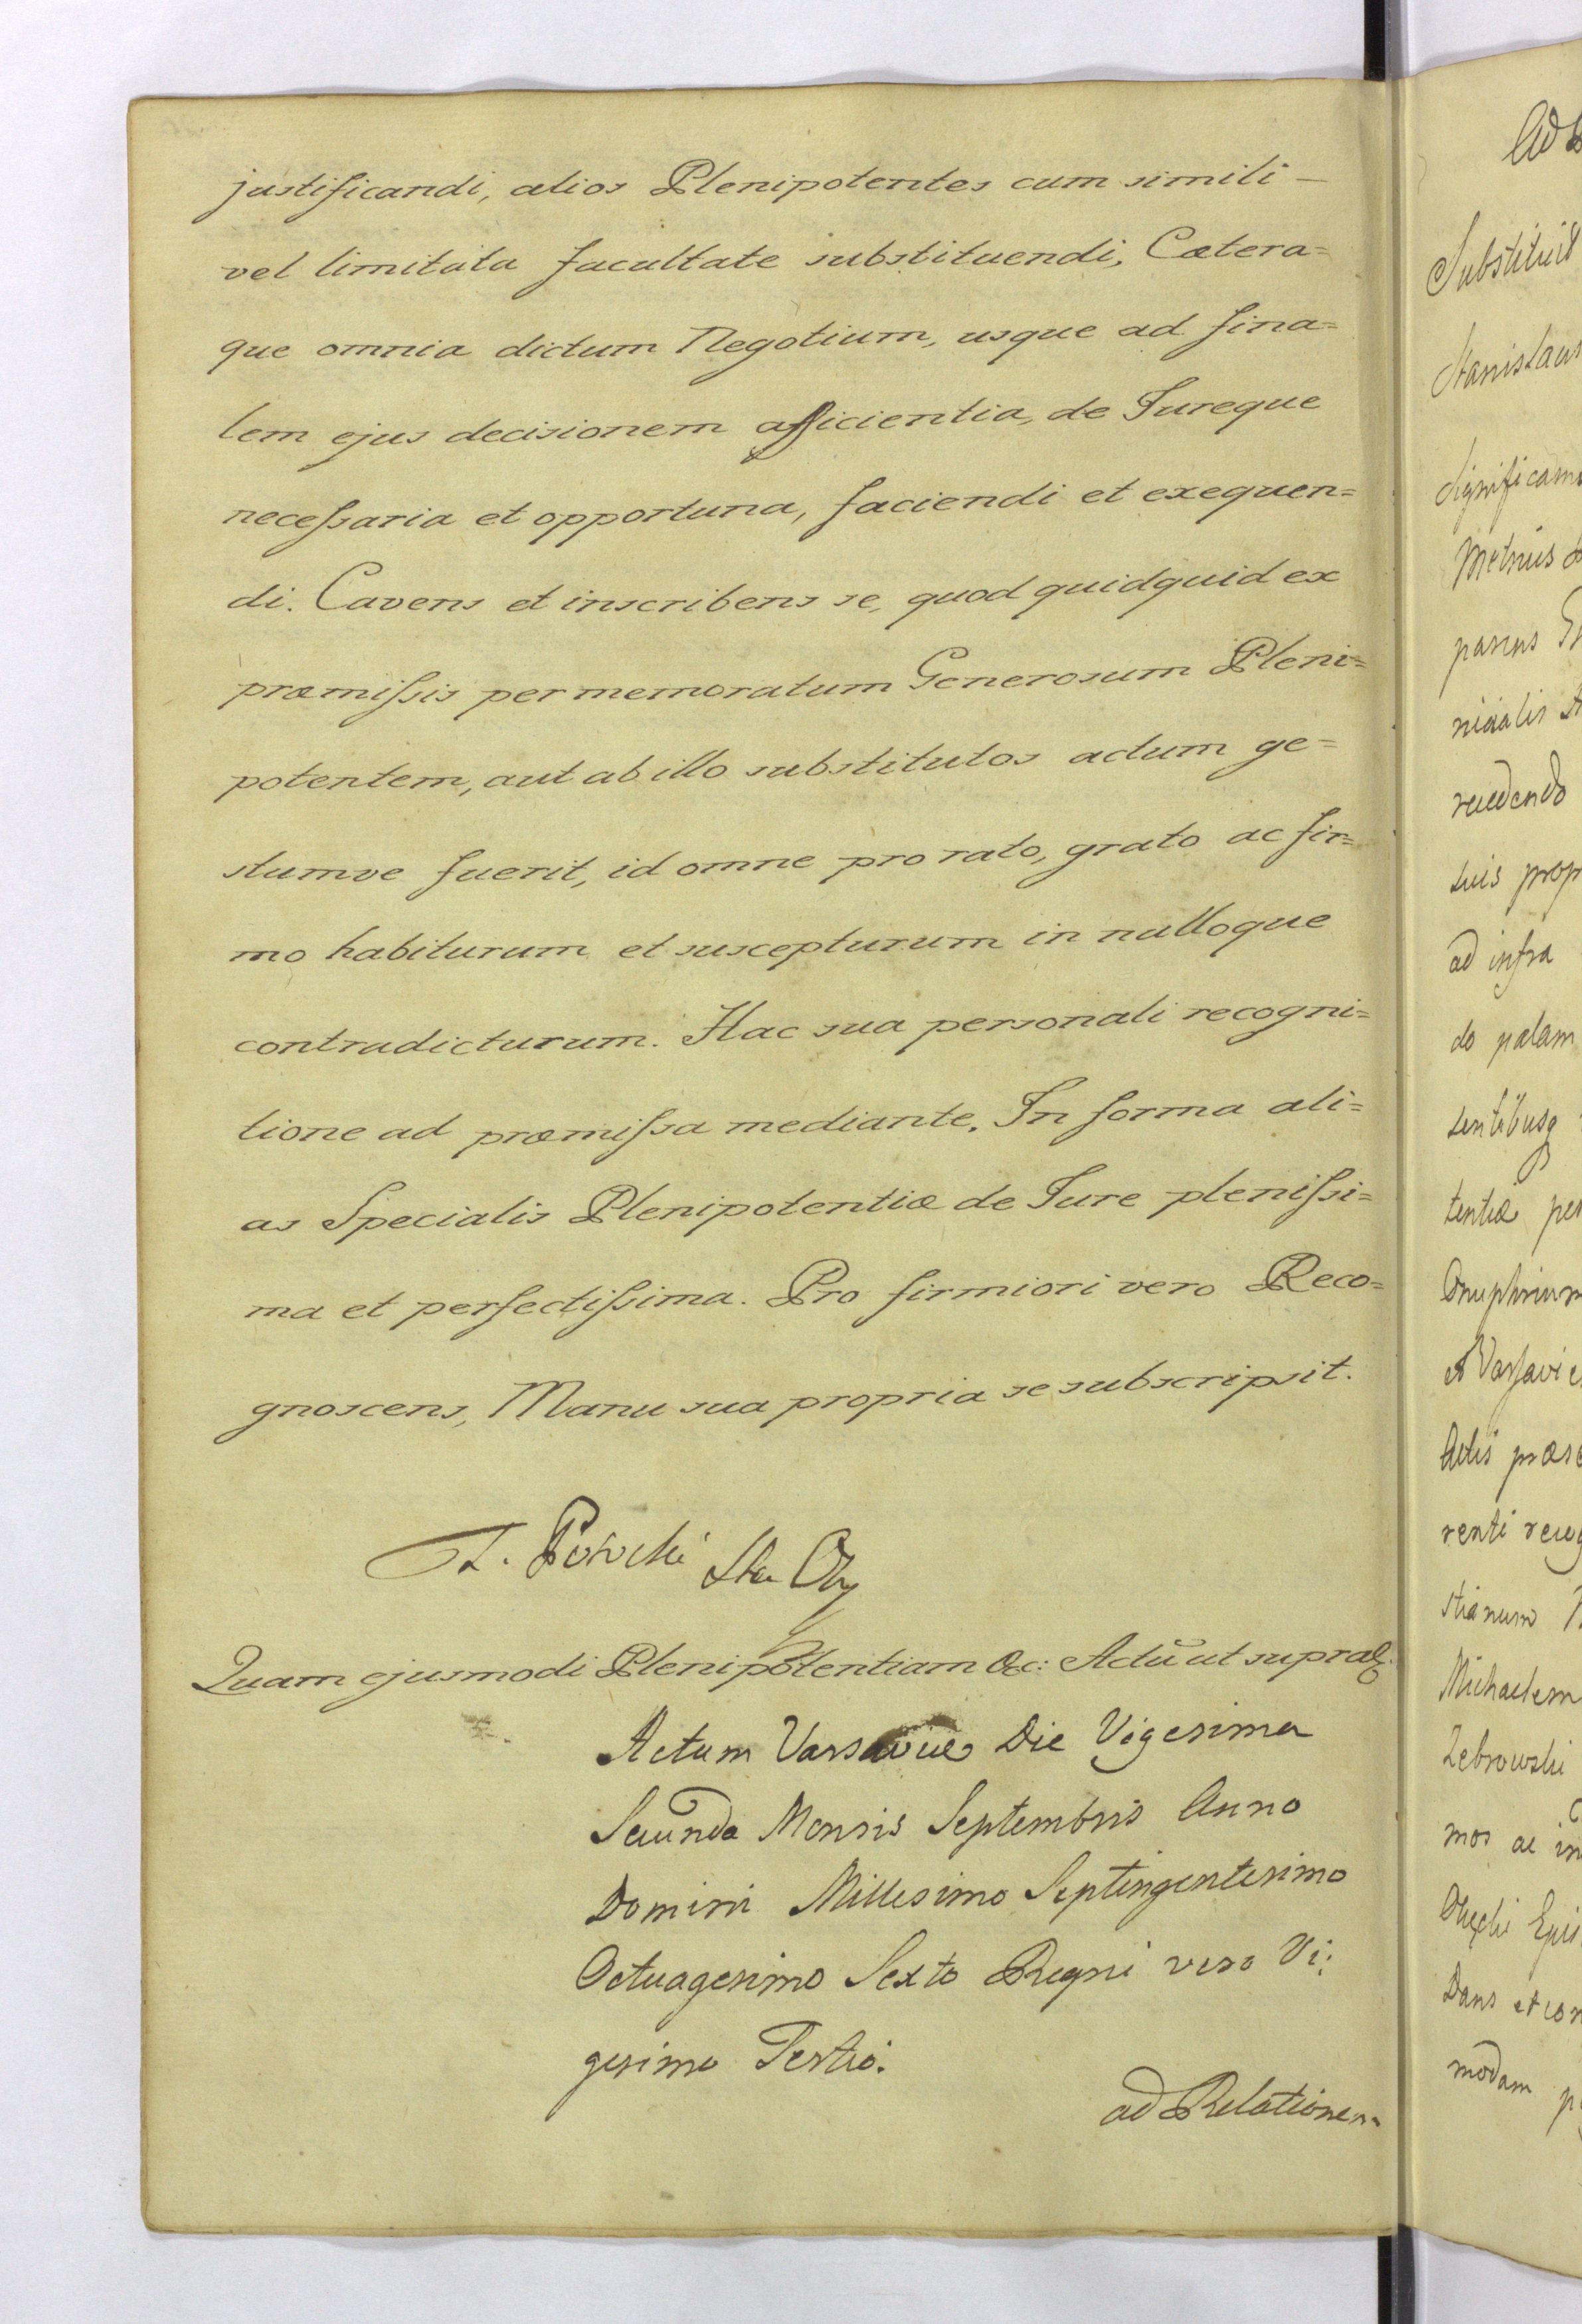 justificandi, alios Plenipotentes cum simili –
vel limitata facultate substituendi, Cætera=
que omnia dictum Negotium, usque ad fina=
lem ejus decisionem afficientia, de Jureque
necessaria et opportuna, faciendi et exequen=
di. Cavens et inscribens se, quod quidquid ex
præmissis per memoratum Generosum Pleni=
potentem, aut ab illo substitutos actum ge=
stumve fuerit, id omne pro rato, grato ac fir=
mo habiturum et suscepturum in nulloque
contradicturum. Hac sua personali recogni=
tione ad præmissa mediante. In forma ali=
as Specialis Plenipotentiæ de Jure plenissi=
ma et perfectissima. Pro firmiori vero Reco=
gnoscens, Manu sua propria se subscripsit.
Quam ejusmodi Plenipotentiam &c: Actū ut supra
Actum Varsaviæ Die Vigesima
Secunda Mensis Septembris Anno
Domini Millesimo Septingentesimo
Octuagesimo Sexto Regni vero Vi:
gesimo Tertio.
ad Relationem
Substituit
Stanislaus
Significam
parens
nicialis
recedendo
suis prop
ad infra
do palam
sentibusq
tentiæ per
Onuphrium
Actis præs
renti recog
stianum
Michaelem
Zebrowski
mos ac in
Dans et con
modam